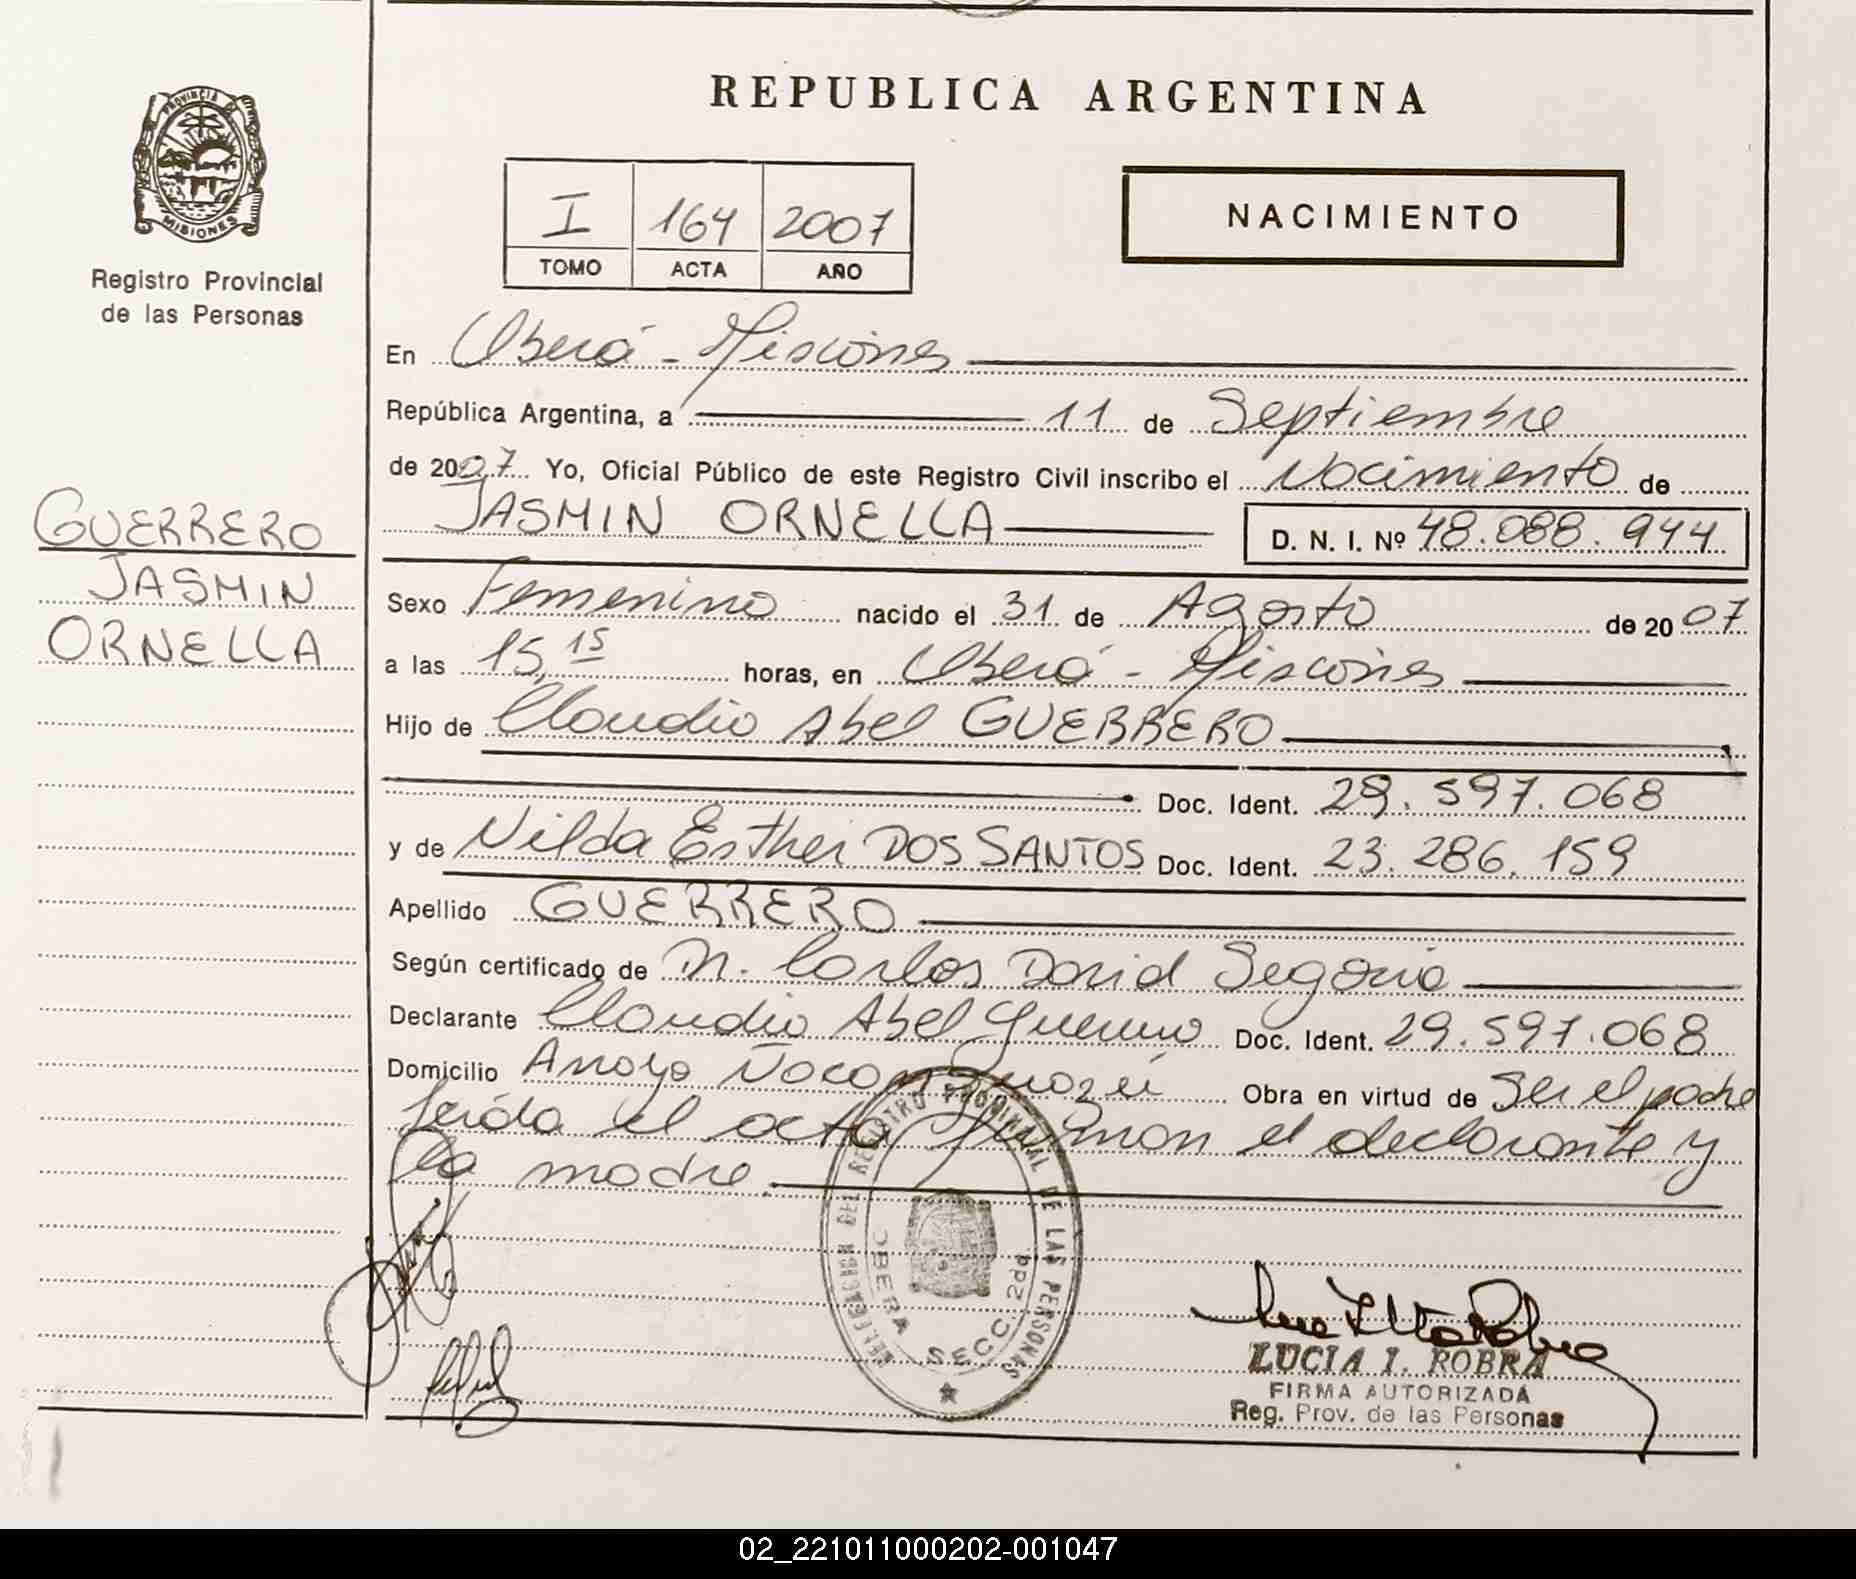 REPUBLICA ARGENTINA
PROVINCIA
MISIONES
Registro Provincial
de las Personas
I 164 2007
TOMO ACTA AÑO
NACIMIENTO
En Oberá - Misiones
República Argentina, a 11 de Septiembre
de 2007 Yo, Oficial Público de este Registro Civil inscribo el Nacimiento de
JASMIN ORNELLA D. N. I. Nº 48.088.944
GUERRERO
JASMIN
ORNELLA
Sexo Femenino nacido el 31 de Agosto de 2007
a las 15,15 horas, en Oberá - Misiones
Hijo de Claudio Abel GUERRERO
Doc. Ident. 29.597.068
y de Nilda Esther DOS SANTOS Doc. Ident. 23.286.159
Apellido GUERRERO
Según certificado de Dr. Carlos David Segovia
Declarante Claudio Abel Guerrero Doc. Ident. 29.597.068
Domicilio Arroyo Obra en virtud de Ser el padre
leída el acta firman el declarante y
la madre.
DELEGACION DEL REGISTRO PROVINCIAL DE LAS PERSONAS
OBERA SECC. 2da
LUCIA I. ROBRA
FIRMA AUTORIZADA
Reg. Prov. de las Personas
02_221011000202-001047